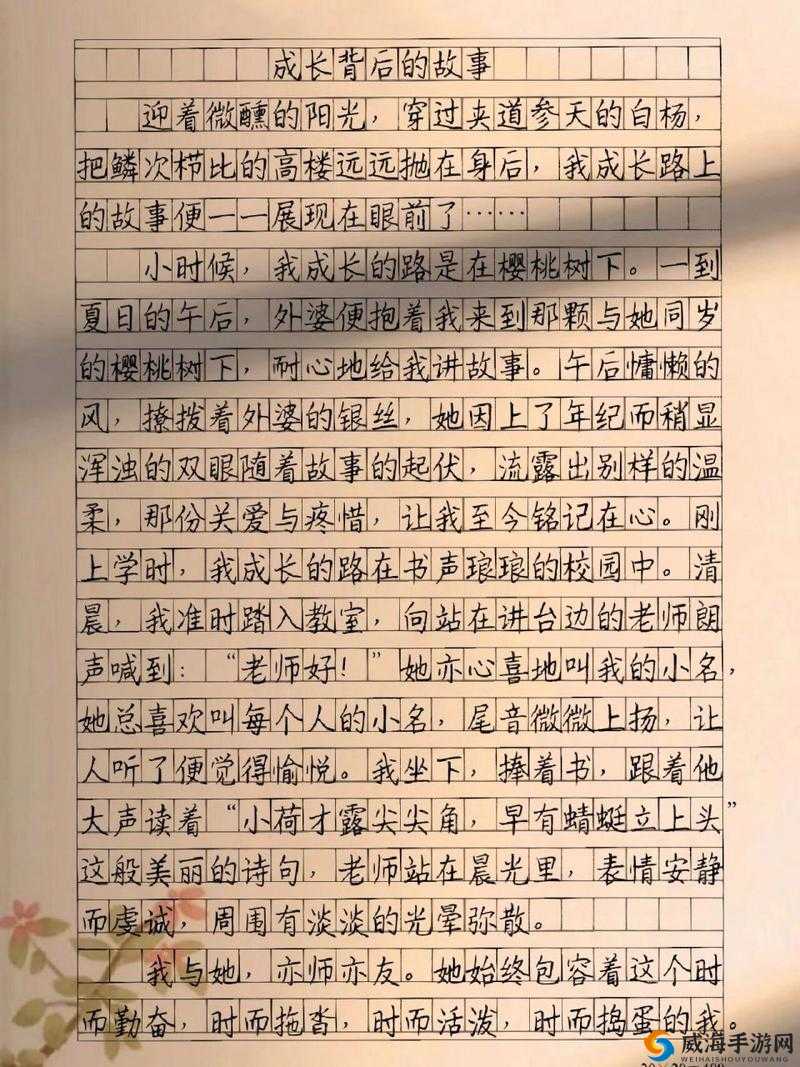 成长背后的故事
迎着微醺的阳光，穿过夹道参天的白杨，
把鳞次栉比的高楼远远抛在身后，我成长路上
的故事便一一展现在眼前了……
小时候，我成长的路是在樱桃树下。一到
夏日的午后，外婆便抱着我来到那颗与她同岁
的樱桃树下，耐心地给我讲故事。午后慵懒的
风，撩拨着外婆的银丝，她因上了年纪而稍显
浑浊的双眼随着故事的起伏，流露出别样的温
柔，那份关爱与疼惜，让我至今铭记在心。刚
上学时，我成长的路在书声琅琅的校园中。清
晨，我准时踏入教室，向站在讲台边的老师朗
声喊到：“老师好！”她亦心喜地叫我的小名，
她总喜欢叫每个人的小名，尾音微微上扬，让
人听了便觉得愉悦。我坐下，捧着书，跟着他
大声读着“小荷才露尖尖角，早有蜻蜓立上头”
这般美丽的诗句，老师站在晨光里，表情安静
而虔诚，周围有淡淡的光晕弥散。
我与她，亦师亦友。她始终包容着这个时
而勤奋，时而拖沓，时而活泼，时而捣蛋的我。
威海手游网
WEIHAISHOUYOUWANG
20×20=400